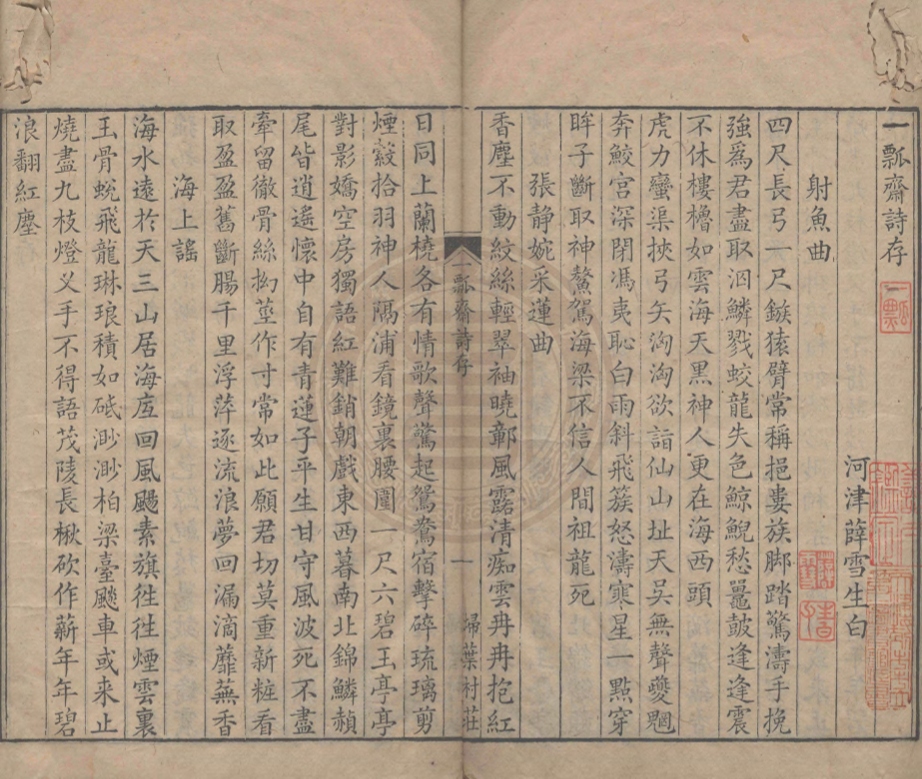 一瓢齋詩存
河津薛雪生白
射魚曲
四尺長弓一尺鏃猿臂常稱挹婁族脚踏驚濤手挽
強爲君盡取泅鱗戮蛟龍失色鯨鯢愁鼉鼓逢逢震
不休樓櫓如雲海天黑神人更在海西頭
虎力蠻渠挾弓矢洶洶欲詣仙山址天吴無聲夔魍
奔鮫宫深閉馮夷恥白雨斜飛簇怒濤寒星一點穿
眸子斷取神鰲駕海梁不信人間祖龍死
張静婉采蓮曲
香塵不動紋絲輕翠袖曉鄣風露清痴雲冉冉抱紅
日同上蘭橈各有情歌聲驚起鴛鴦宿擊碎琉璃剪
煙縠拾羽神人隔浦看鏡裏腰圍一尺六碧玉亭亭
對影嬌空房獨語紅難銷朝戲東西暮南北錦鱗赬
尾皆逍遙懷中自有青蓮子平生甘守風波死不盡
牽留徹骨絲拗莖作寸常如此願君切莫重新粧看
取盈盈舊斷腸千里浮萍逐流浪夢回漏滴蘼蕪香
海上謠
海水遠於天三山居海底回風颺素旗徃徃煙雲裏
玉骨蜕飛龍琳琅積如砥渺渺柏梁臺颷車或来止
燒盡九枝燈义手不得語茂陵長楸砍作薪年年碧
浪翻紅塵
一瓢齋詩存
一
掃葉村莊